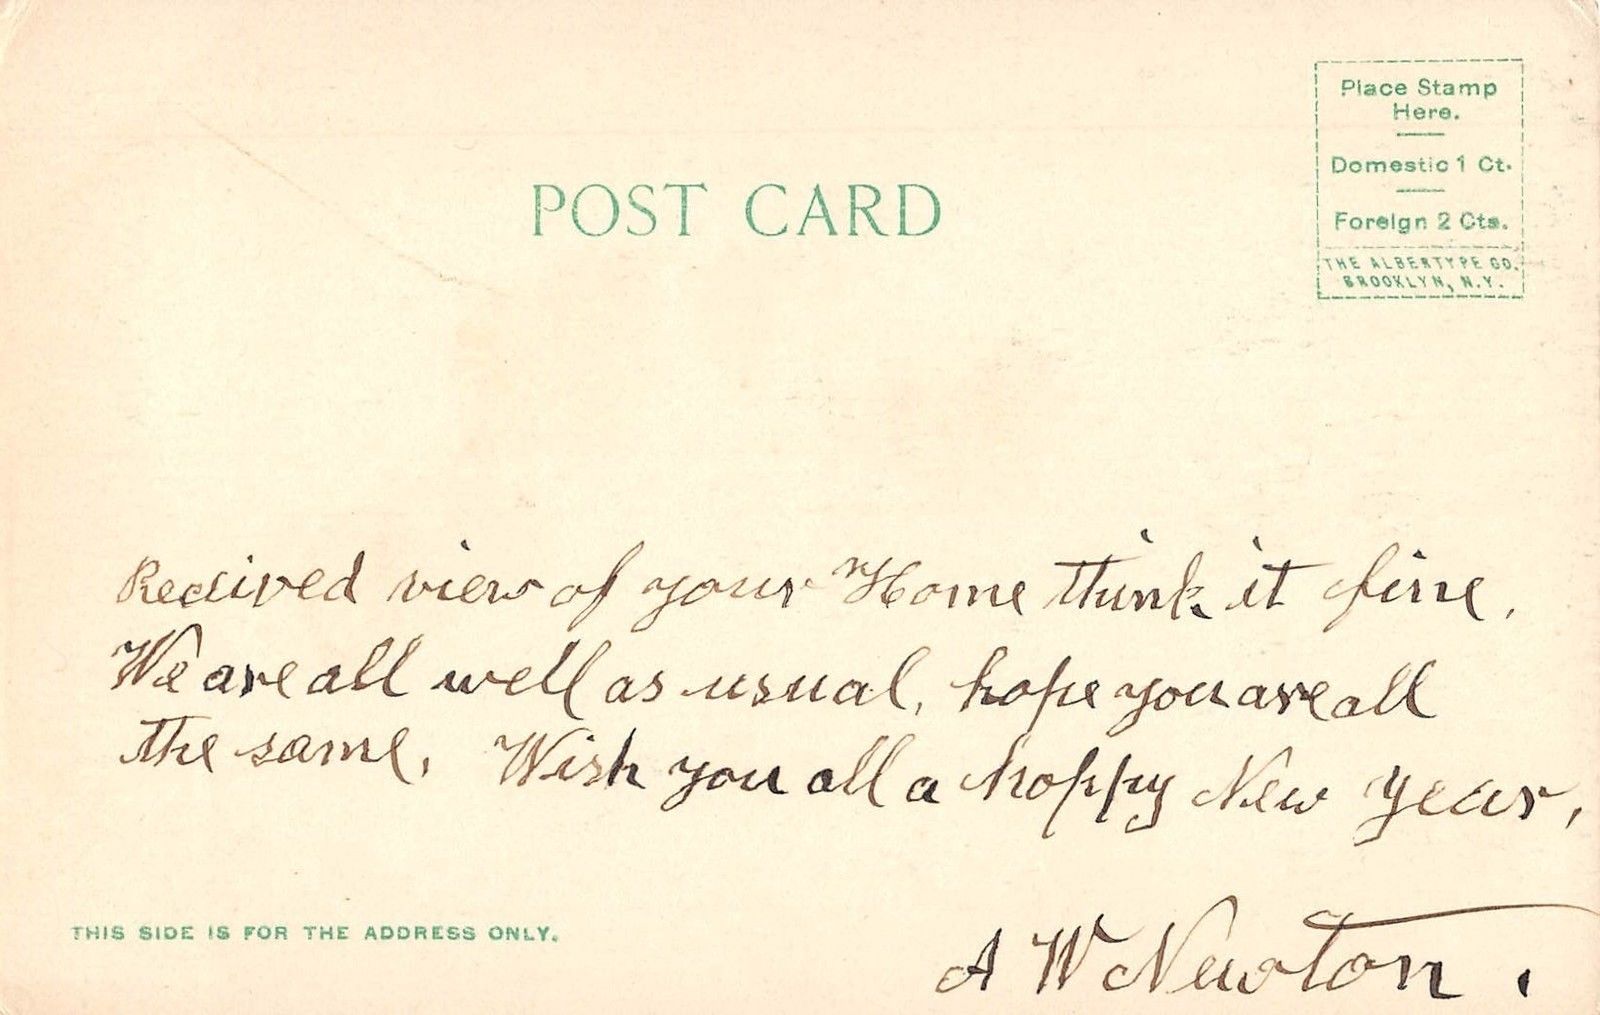 Place Stamp
Here.
Domestic 1 Ct.
Foreign 2 Cts.
THE ALBERTYPE CO.
BROOKLYN, N.Y.
POST CARD
Received view of your Home think it fine,
We are all well as usual, hope you are all
the same, Wish you all a happy New Year,
THIS SIDE IS FOR THE ADDRESS ONLY.
A W Newton.